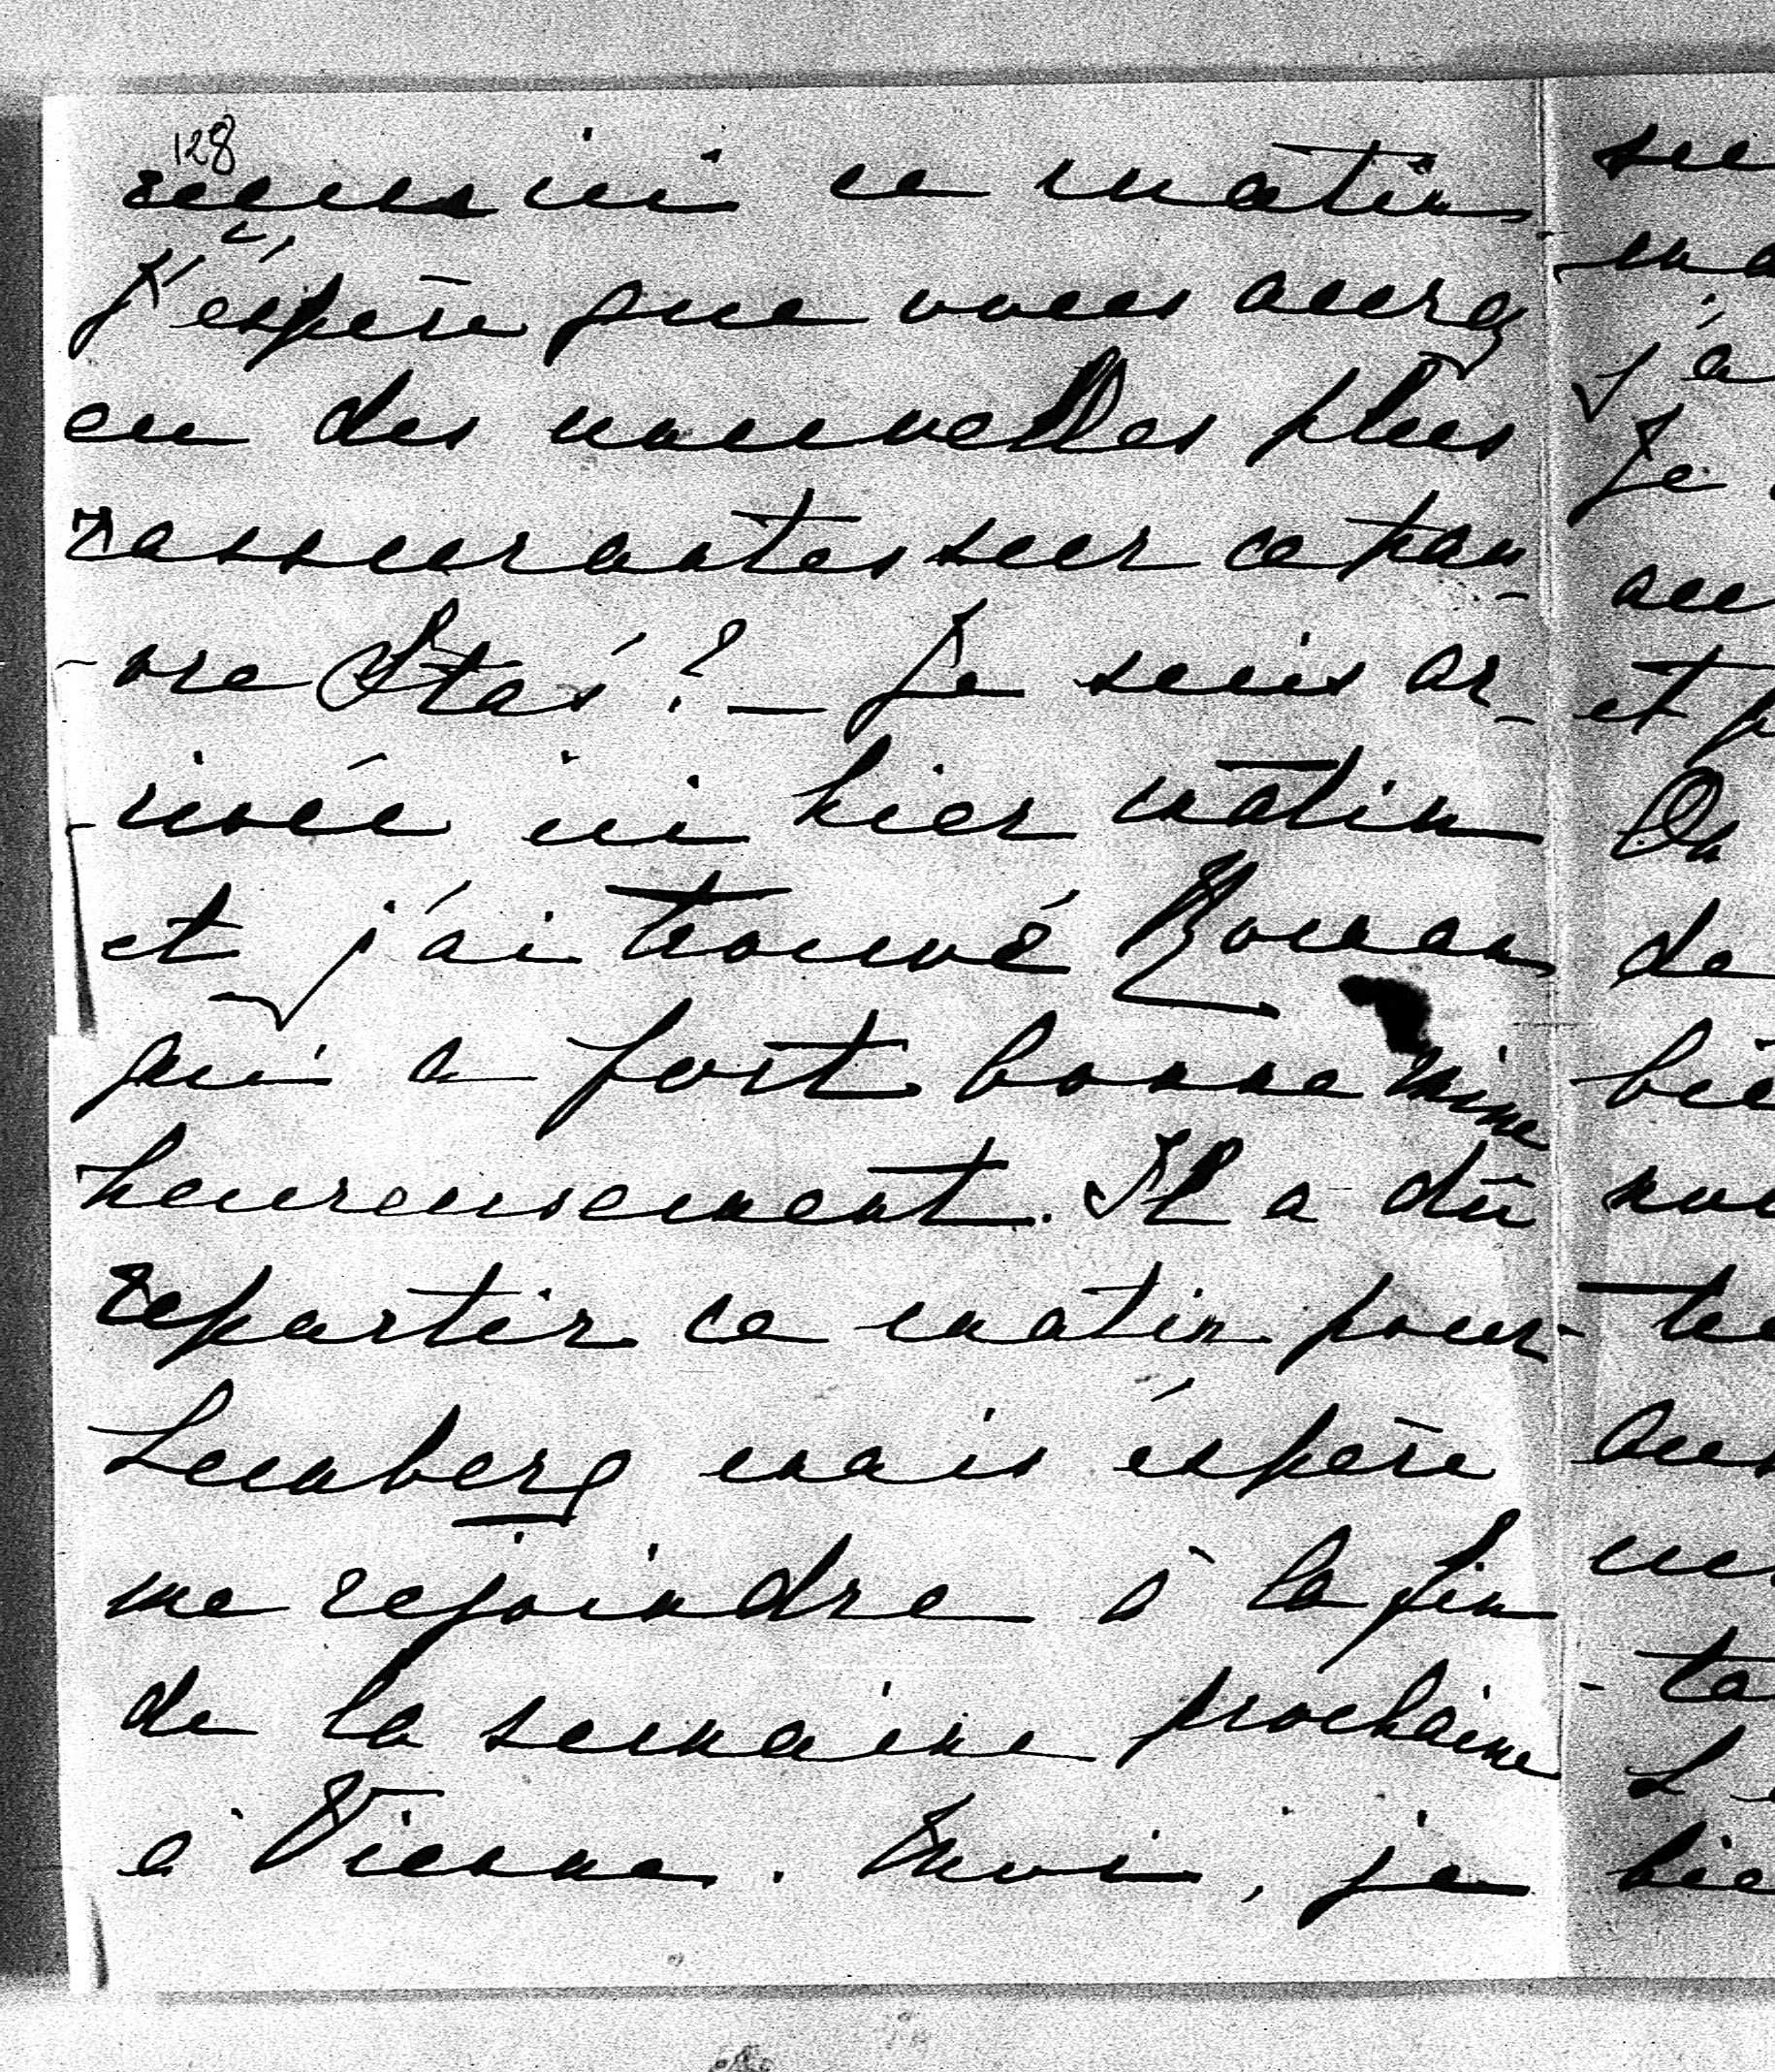 128
reçus ici ce matin.
J'éspère que vous aurez
eu des nouvelles plus
rassurantes sur ce pau-
-vre Staś? — Je suis ar-
-rivée ici hier matin
et j'ai trouvé Roman
qui a fort bonne mine
heureusement. Il a dû
repartir ce matin pour
Lemberg mais éspère
me rejoindre à la fin
de la semaine prochaine
à Vienne. Moi, je
j'a
Je
et p
On
de